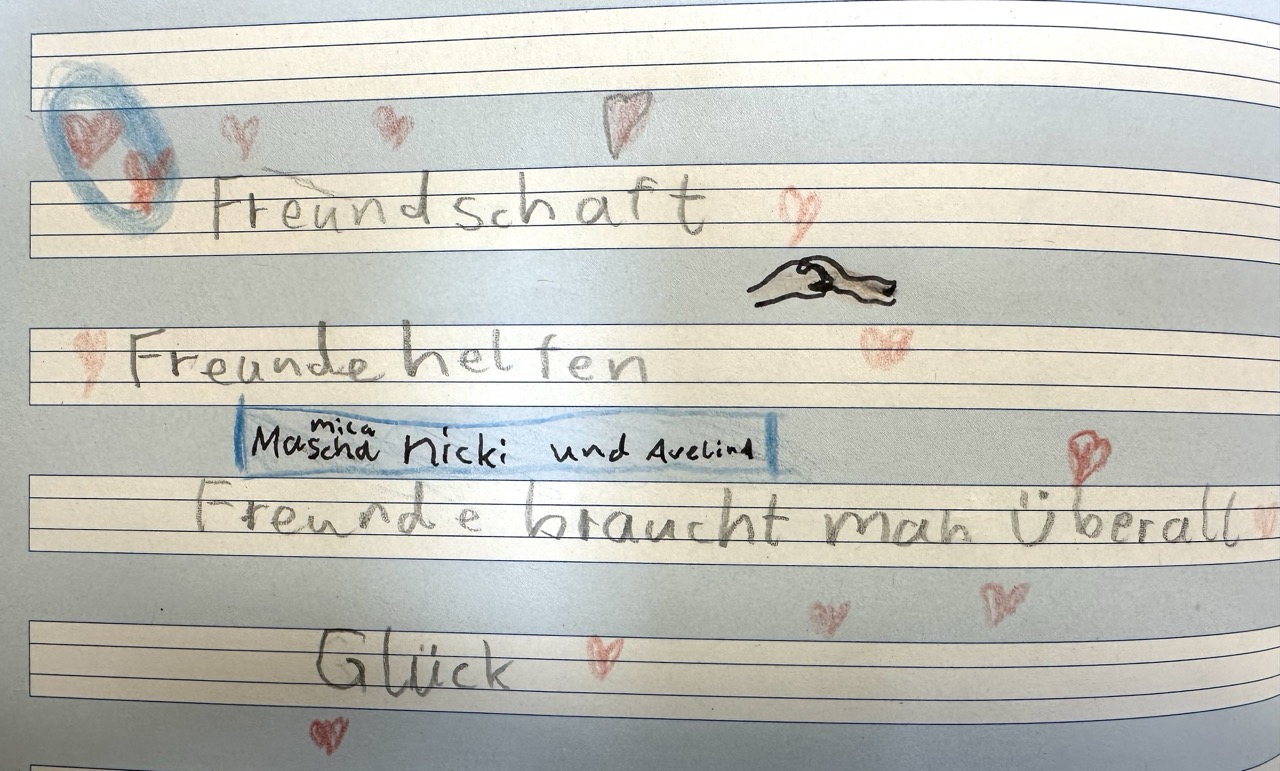 Freundschaft
Freunde helfen
mica
Mascha nicki und Avelina
Freunde braucht man Überall
Glück